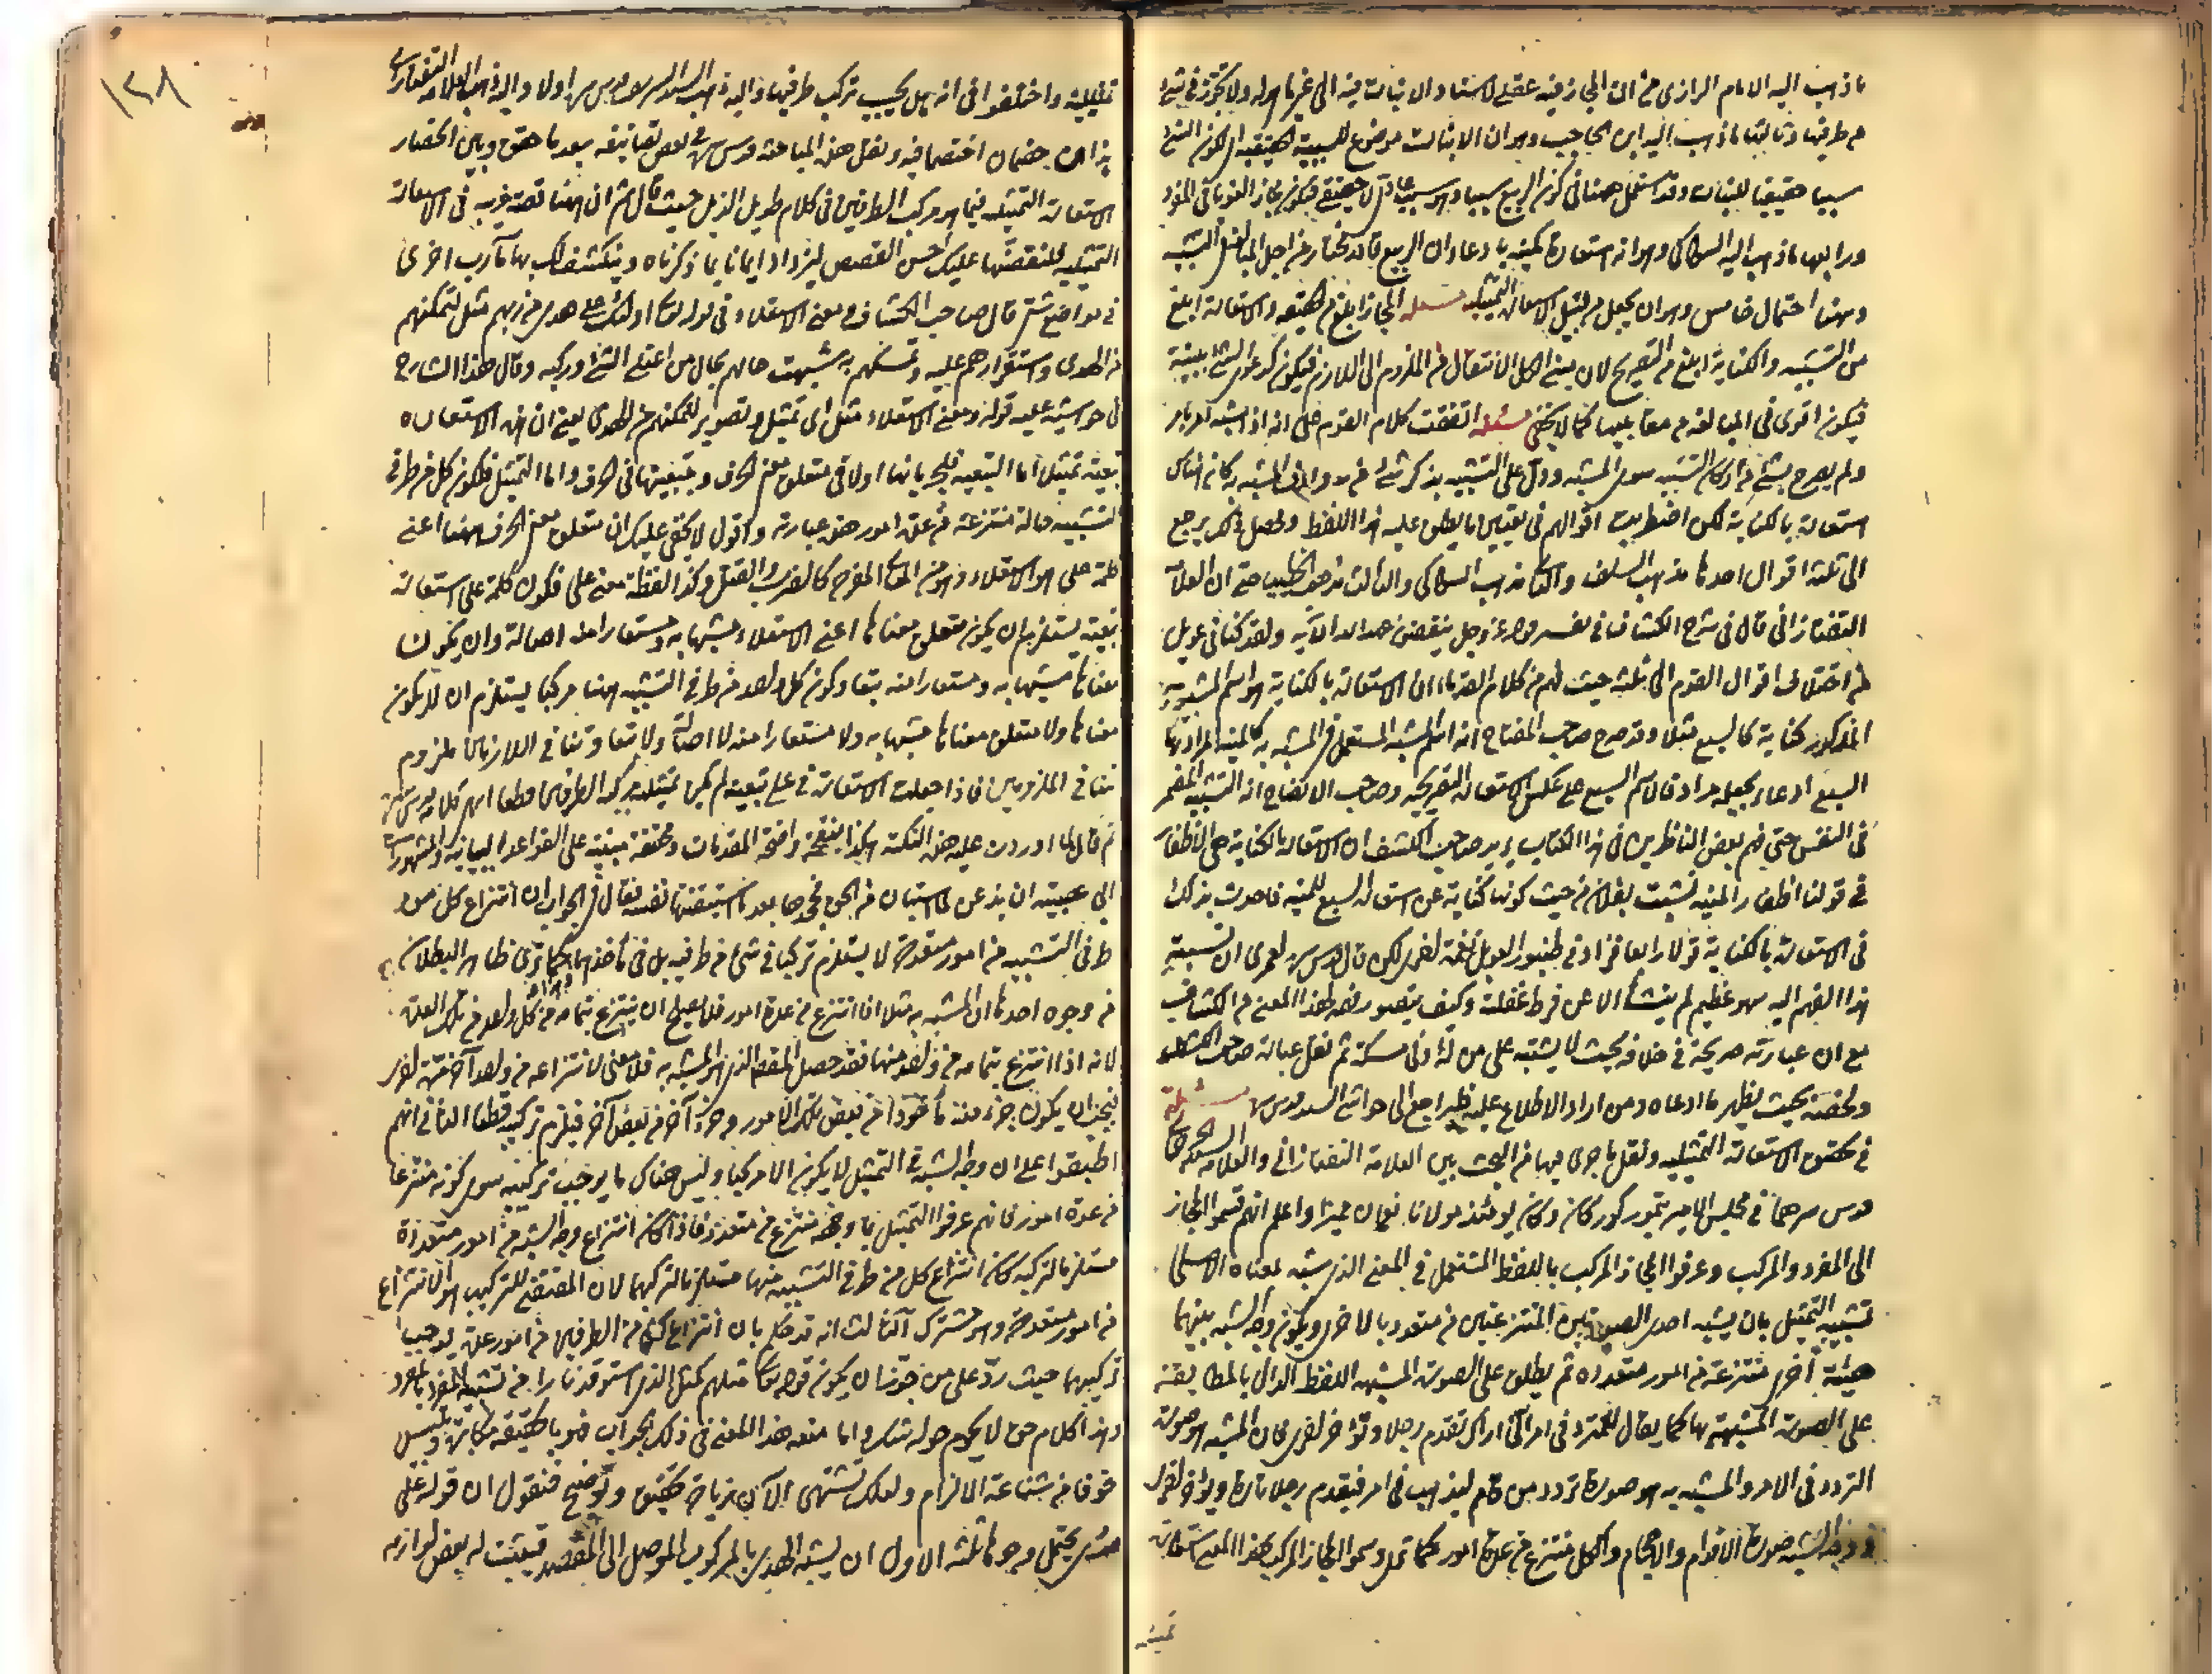 ما ذهب اليه الامام الرازى من ان المجاز فيه عقلى لاسناد الانبات فيه الى غير ما هو له ولا تجوز فى شئ
من طرفيه وثالثها ما ذهب اليه ابن الحاجب وهو ان الانبات موضوع للسببية الحقيقية لكون الشئ
سببا حقيقيا للنبات وقد استعمل ههنا فى كون الربيع سببا وهو سبب عادى لا حقيقى فيكون مجازا لغويا فى المفرد
ورابعها ما ذهب اليه السكاكى وهو انه استعارة مكنية بادعاء ان الربيع فاعل مختار من اجل المبالغة فى التشبيه
وههنا احتمال خامس وهو ان يجعل من قبيل الاستعارة التمثيلية مسئلة المجاز ابلغ من الحقيقة والاستعارة ابلغ
من التشبيه والكناية ابلغ من التصريح لان مبنى الكل الانتقال من الملزوم الى اللازم فيكون كدعوى الشئ ببينة
فيكون اقوى فى المبالغة من مقابليها كما لا يخفى مسئلة اتفقت كلام القوم على انه اذا شبه امر بامر
ولم يصرح بشئ من اركان التشبيه سوى المشبه ودل على التشبيه بذكر شئ من روادف المشبه به كان هناك
استعارة بالكناية لكن اضطربت اقوالهم فى تعيين ما يطلق عليه هذا اللفظ وحصل ذلك يرجع
الى ثلثة اقوال احدها مذهب السلف والثانى مذهب السكاكى والثالث مذهب الخطيب حتى ان العلامة
التفتازانى قال فى شرح الكشاف فى تفسير قوله عز وجل ينقضون عهد الله الآية ولقد كنا فى عويل
من اختلاف اقوال القوم الى ثلثة حيث فهم من كلام القدماء ان الاستعارة بالكناية هو اسم المشبه به
المذكور كناية كالسبع مثلا وقد صرح صاحب المفتاح انه اسم المشبه المستعمل فى المشبه به كالمنية المراد بها
السبع ادعاء بجعله مرادفا لاسم السبع على عكس الاستعارة التصريحية وصاحب الايضاح انه التشبيه المضمر
فى النفس حتى فهم بعض الناظرين فى هذا الكتاب يريد صاحب الكشف ان الاستعارة بالكناية هى الاظفار
فى قولنا اظفار المنية نشبت بفلان من حيث كونها كناية عن استعارة السبع للمنية فاحدث بذلك
فى الاستعارة بالكناية قولا رابعا فزاد فى طنبور العويل نغمة اخرى لكن قال قدس سره لعمرى ان نسبة
هذا الفهم اليه سهو عظيم لم ينشأ الا عن فرط غفلة وكيف يتصور فهم هذا المعنى من الكشاف
مع ان عبارته صريحة فى خلافه بحيث لا يشتبه على من له ادنى مسكة ثم نقل عبارة صاحب الكشف
ولخصه بحيث يظهر ما ادعاه ومن اراد الاطلاع عليه فليراجع الى حواشى السيد قدس سره مسئلة
فى تحقيق الاستعارة التمثيلية ونقل ما جرى فيها من البحث بين العلامة التفتازانى والعلامة السيد الجرجانى
قدس سرهما فى مجلس الامير تيمور كوركان وكان يومئذ مولانا نعمان مميزا واعلم انهم قسموا المجاز
الى المفرد والمركب وعرفوا المجاز المركب باللفظ المستعمل فى المعنى الذى شبه بمعناه الاصلى
تشبيه التمثيل بان يشبه احدى الصورتين المنتزعتين من متعدد بالاخرى ويكون وجه الشبه بينهما
هيئة اخرى منتزعة من امور متعددة ثم يطلق على الصورة المشبهة اللفظ الدال بالمطابقة
على الصورة المشبهة بها كما يقال للمتردد فى امر انى اراك تقدم رجلا وتؤخر اخرى فان المشبه هو صورة
التردد فى الامر والمشبه به هو صورة تردد من قام ليذهب فى امر فيقدم رجلا تارة ويؤخر اخرى
ووجه الشبه صورة الاقدام والاحجام والكل منتزع من عدة امور كما ترى وسموا المجاز المركب بهذا المعنى استعارة
تمثيلية
١٣٨
تمثيلية واختلفوا فى انه هل يجب تركب طرفيها واليه ذهب السيد السند قدس سره اولا واليه ذهب العلامة التفتازانى
هذان خصمان اختصما فيه ونقل هذه المباحثة قدس سره فى بعض تصانيفه بعد ما حقق وبين انحصار
الاستعارة التمثيلية فيما هو مركب الطرفين فى كلام طويل الذيل حيث قال ثم ان ههنا قصة غريبة فى الاستعارة
التمثيلية فلنقصها عليك احسن القصص ليزداد ايمانا بما ذكرناه وينكشف لك بها مآرب اخرى
فى مواضع شتى قال صاحب الكشاف ومعنى الاستعلاء فى قوله تعالى اولئك على هدى من ربهم مثل لتمكنهم
من الهدى واستقرارهم عليه وتمسكهم به شبهت حالهم بحال من اعتلى الشئ وركبه وقال هذا الشارح
فى حواشيه عليه قوله ومعنى الاستعلاء مثل اى تمثيل وتصوير لتمكنهم من الهدى يعنى ان هذه الاستعارة
تبعية تمثيلا اما التبعية فلجريانها اولا فى متعلق معنى الحرف وتبعيتها فى الحرف واما التمثيل فلكون كل من طرفى
التشبيه حالة منتزعة من عدة امور هذه عبارته واقول لا يخفى عليك ان متعلق معنى الحرف ههنا اعنى
كلمة على هو الاستعلاء وهو من المعانى المفردة كالضرب والقتل وكذا لفظة معنى على فكون كلمة على استعارة
تبعية يستلزم ان يكون متعلق معناها اعنى الاستعلاء مشبها به ومستعارا منه اصالة وان يكون
معناها مشبها به ومستعارا منه تبعا وكون كل واحد من طرفى التشبيه ههنا مركبا يستلزم ان لا يكون
معناها ولا متعلق معناها مشبها به ولا مستعارا منه لا اصالة ولا تبعا وتنافى اللازمين ملزوم
تنافى الملزومين فاذا جعلت الاستعارة فى على تبعية لم يكن تمثيلية مركبة الطرفين قطعا انتهى كلامه قدس سره
ثم قال لما اوردت عليه هذه النكتة هكذا منقحة واضحة المقدمات ومحققة مبنية على القواعد البيانية والمشهورات
ابى عصبيته ان يذعن لما استبان من الحق فجحدها بعد ما استيقنتها نفسه فقال فى الجواب ان انتزاع كل من
طرفى التشبيه من امور متعددة لا يستلزم تركبا فى شئ من طرفيه بل فى مأخذهما وهو كما ترى ظاهر البطلان
من وجوه احدها ان المشبه به مثلا اذا انتزع من عدة امور فلا يصح ان ينتزع بتمامه من كل واحد من تلك العدة
لانه اذا انتزع بتمامه من واحد منها فقد حصل المقصد الذى هو المشبه به فلا معنى لانتزاعه من واحد آخر مرة اخرى
فيجب ان يكون جزء منه مأخوذا من بعض تلك الامور وجزء آخر من بعض آخر فيلزم تركبه قطعا الثانى انهم
اطبقوا على ان وجه الشبه فى التمثيل لا يكون الا مركبا وليس هناك ما يوجب تركبه سوى كونه منتزعا
من عدة امور فانهم عرفوا التمثيل بما وجهه منتزع من متعدد فاذا كان انتزاع وجه الشبه من امور متعددة
مستلزما لتركبه كان انتزاع كل من طرفى التشبيه منها مستلزما لتركبهما لان المقتضى للتركيب هو الانتزاع
من امور متعددة وهو مشترك الثالث انه قد حكم بان انتزاع كل من الطرفين من امور عدة يوجب
تركبهما حيث رد على من جوز ان يكون قوله تعالى مثلهم كمثل الذى استوقد نارا من تشبيه المفرد بالمفرد
وهذا كلام حق لا يحوم حوله شك واما منعه هذا المعنى فى ذلك الجواب فهو بالحقيقة مكابرة وتلبيس
خوفا من شناعة الالزام ولعلك تشتهى الآن زيادة تحقيق وتوضيح فنقول ان قوله على
هدى يحتمل وجوها ثلثة الاول ان يشبه الهدى بالمركوب الموصل الى المقصد فيثبت له بعض لوازمه